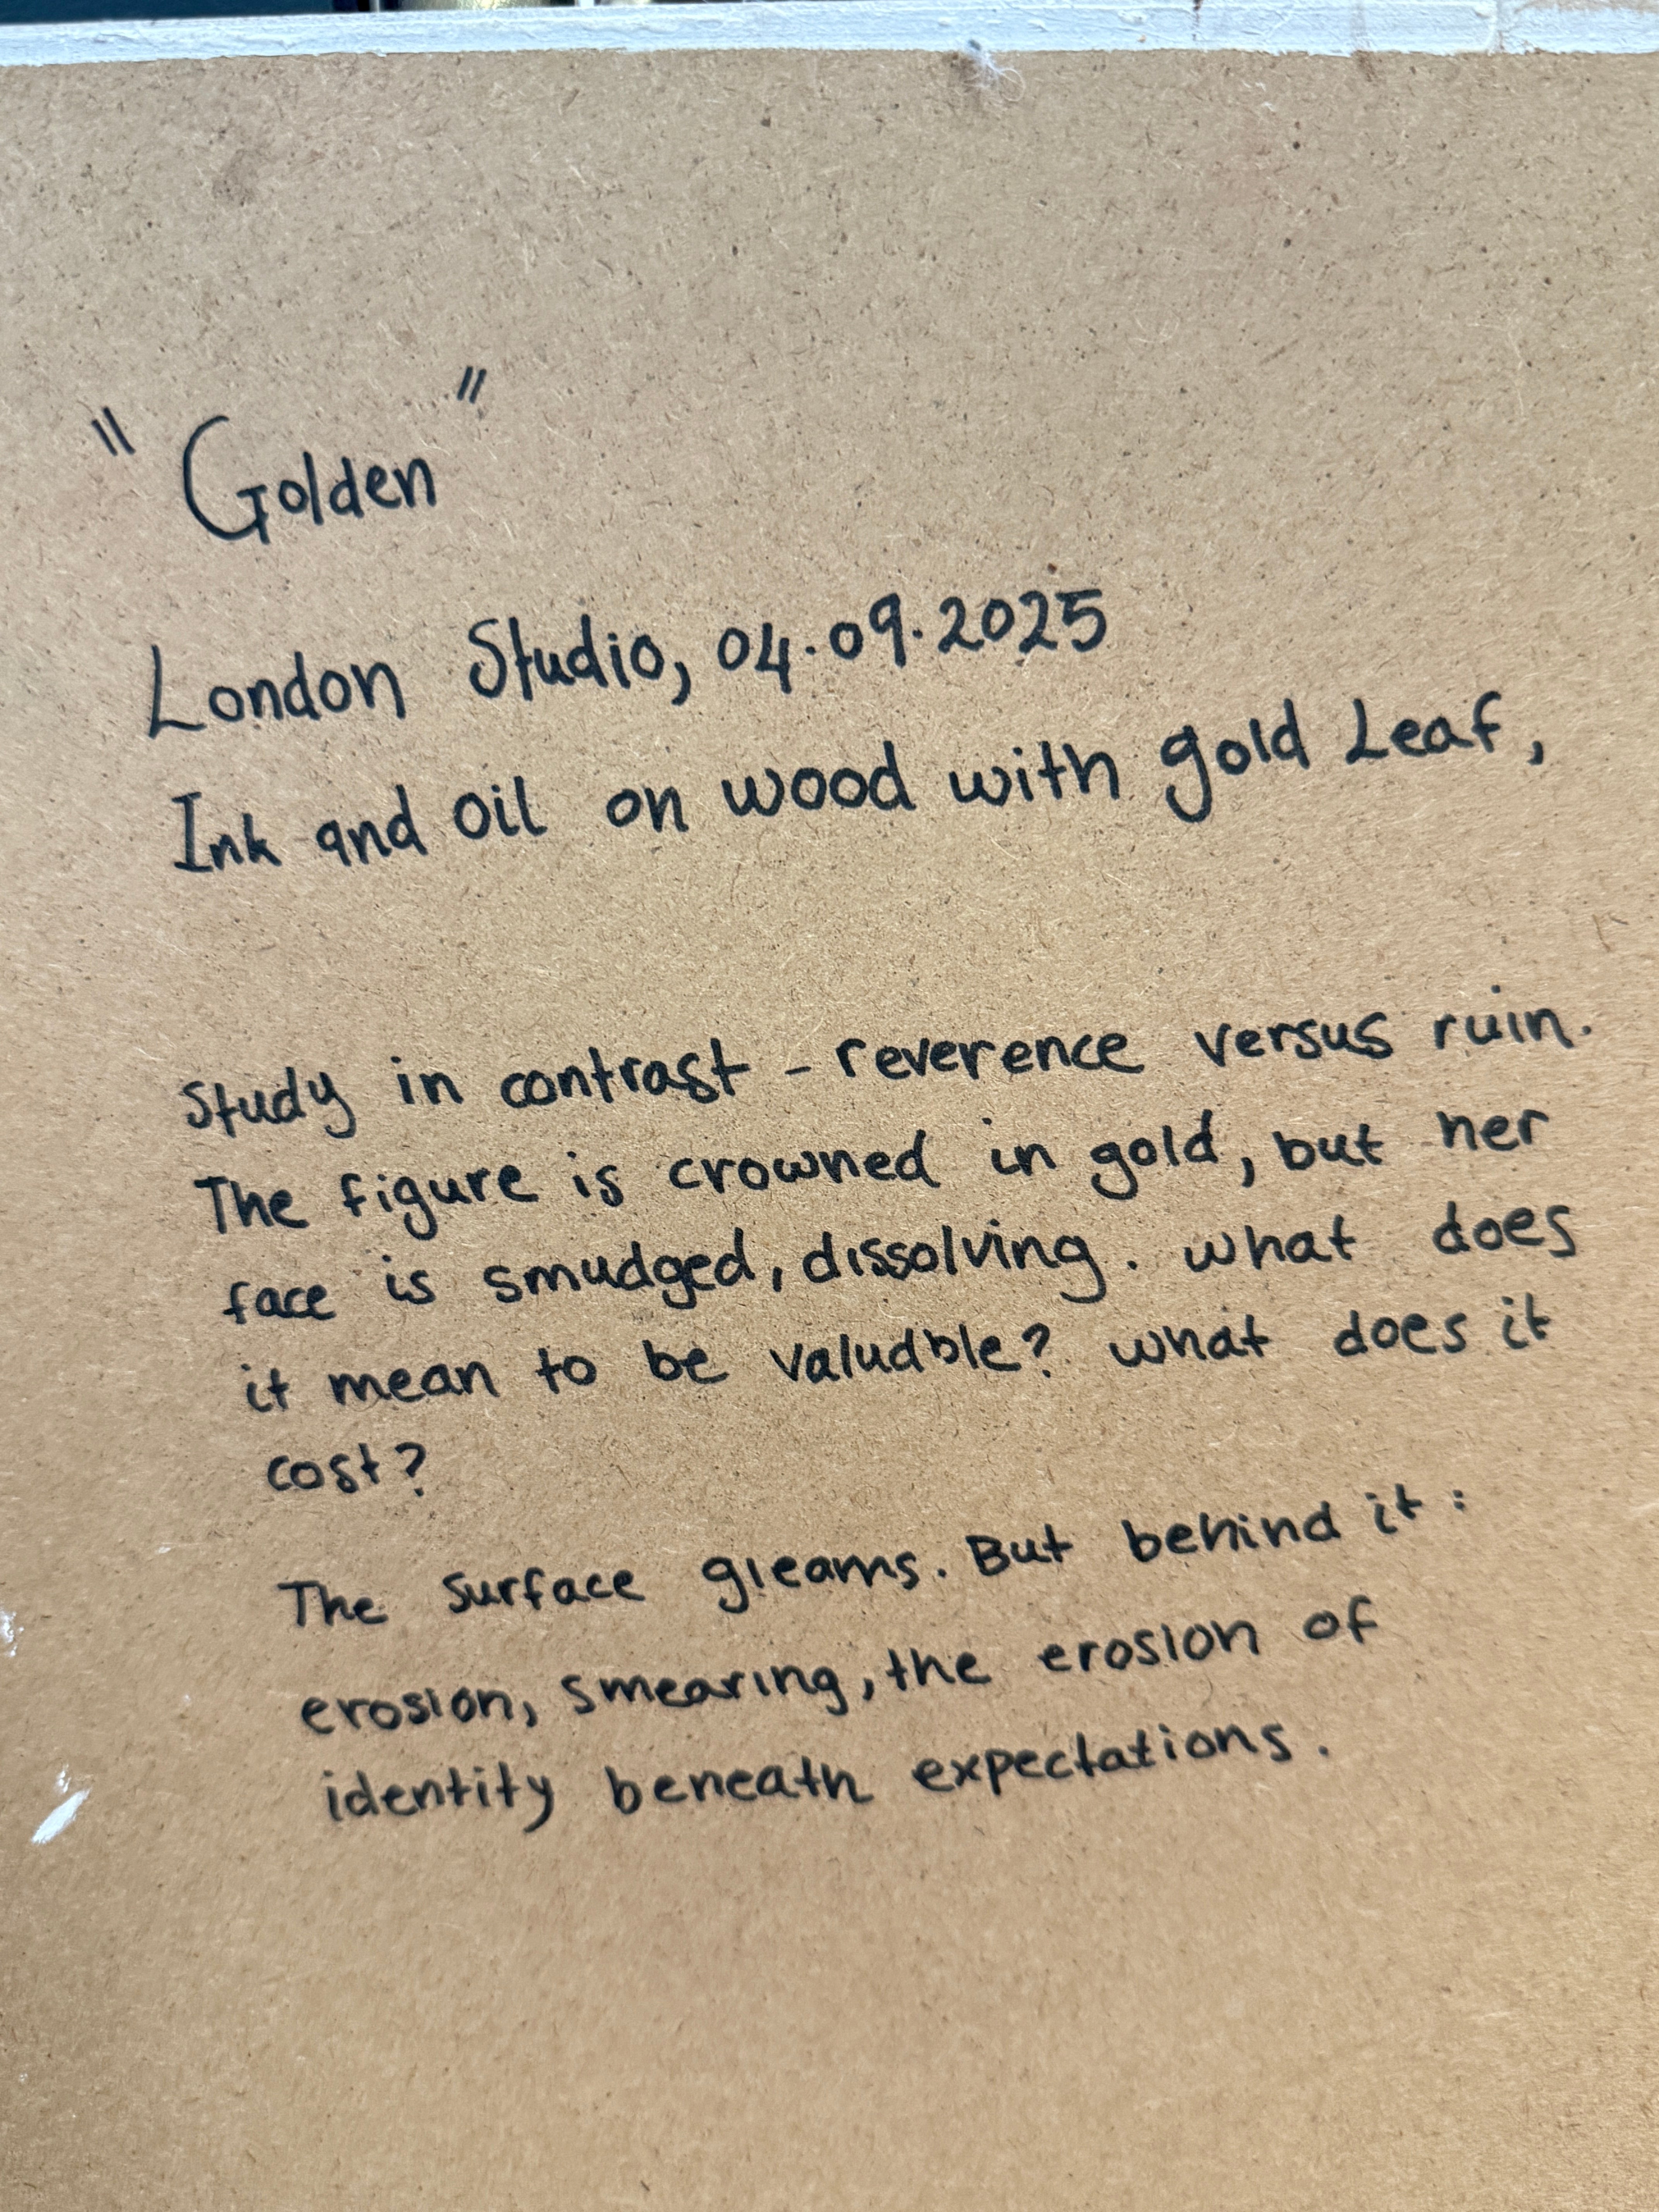 "Golden"
London Studio, 04.09.2025
Ink and oil on wood with gold Leaf,
Study in contrast - reverence versus ruin.
The figure is crowned in gold, but her
face is smudged, dissolving. what does
it mean to be valuable? what does it
cost?
The surface gleams. But behind it:
erosion, smearing, the erosion of
identity beneath expectations.